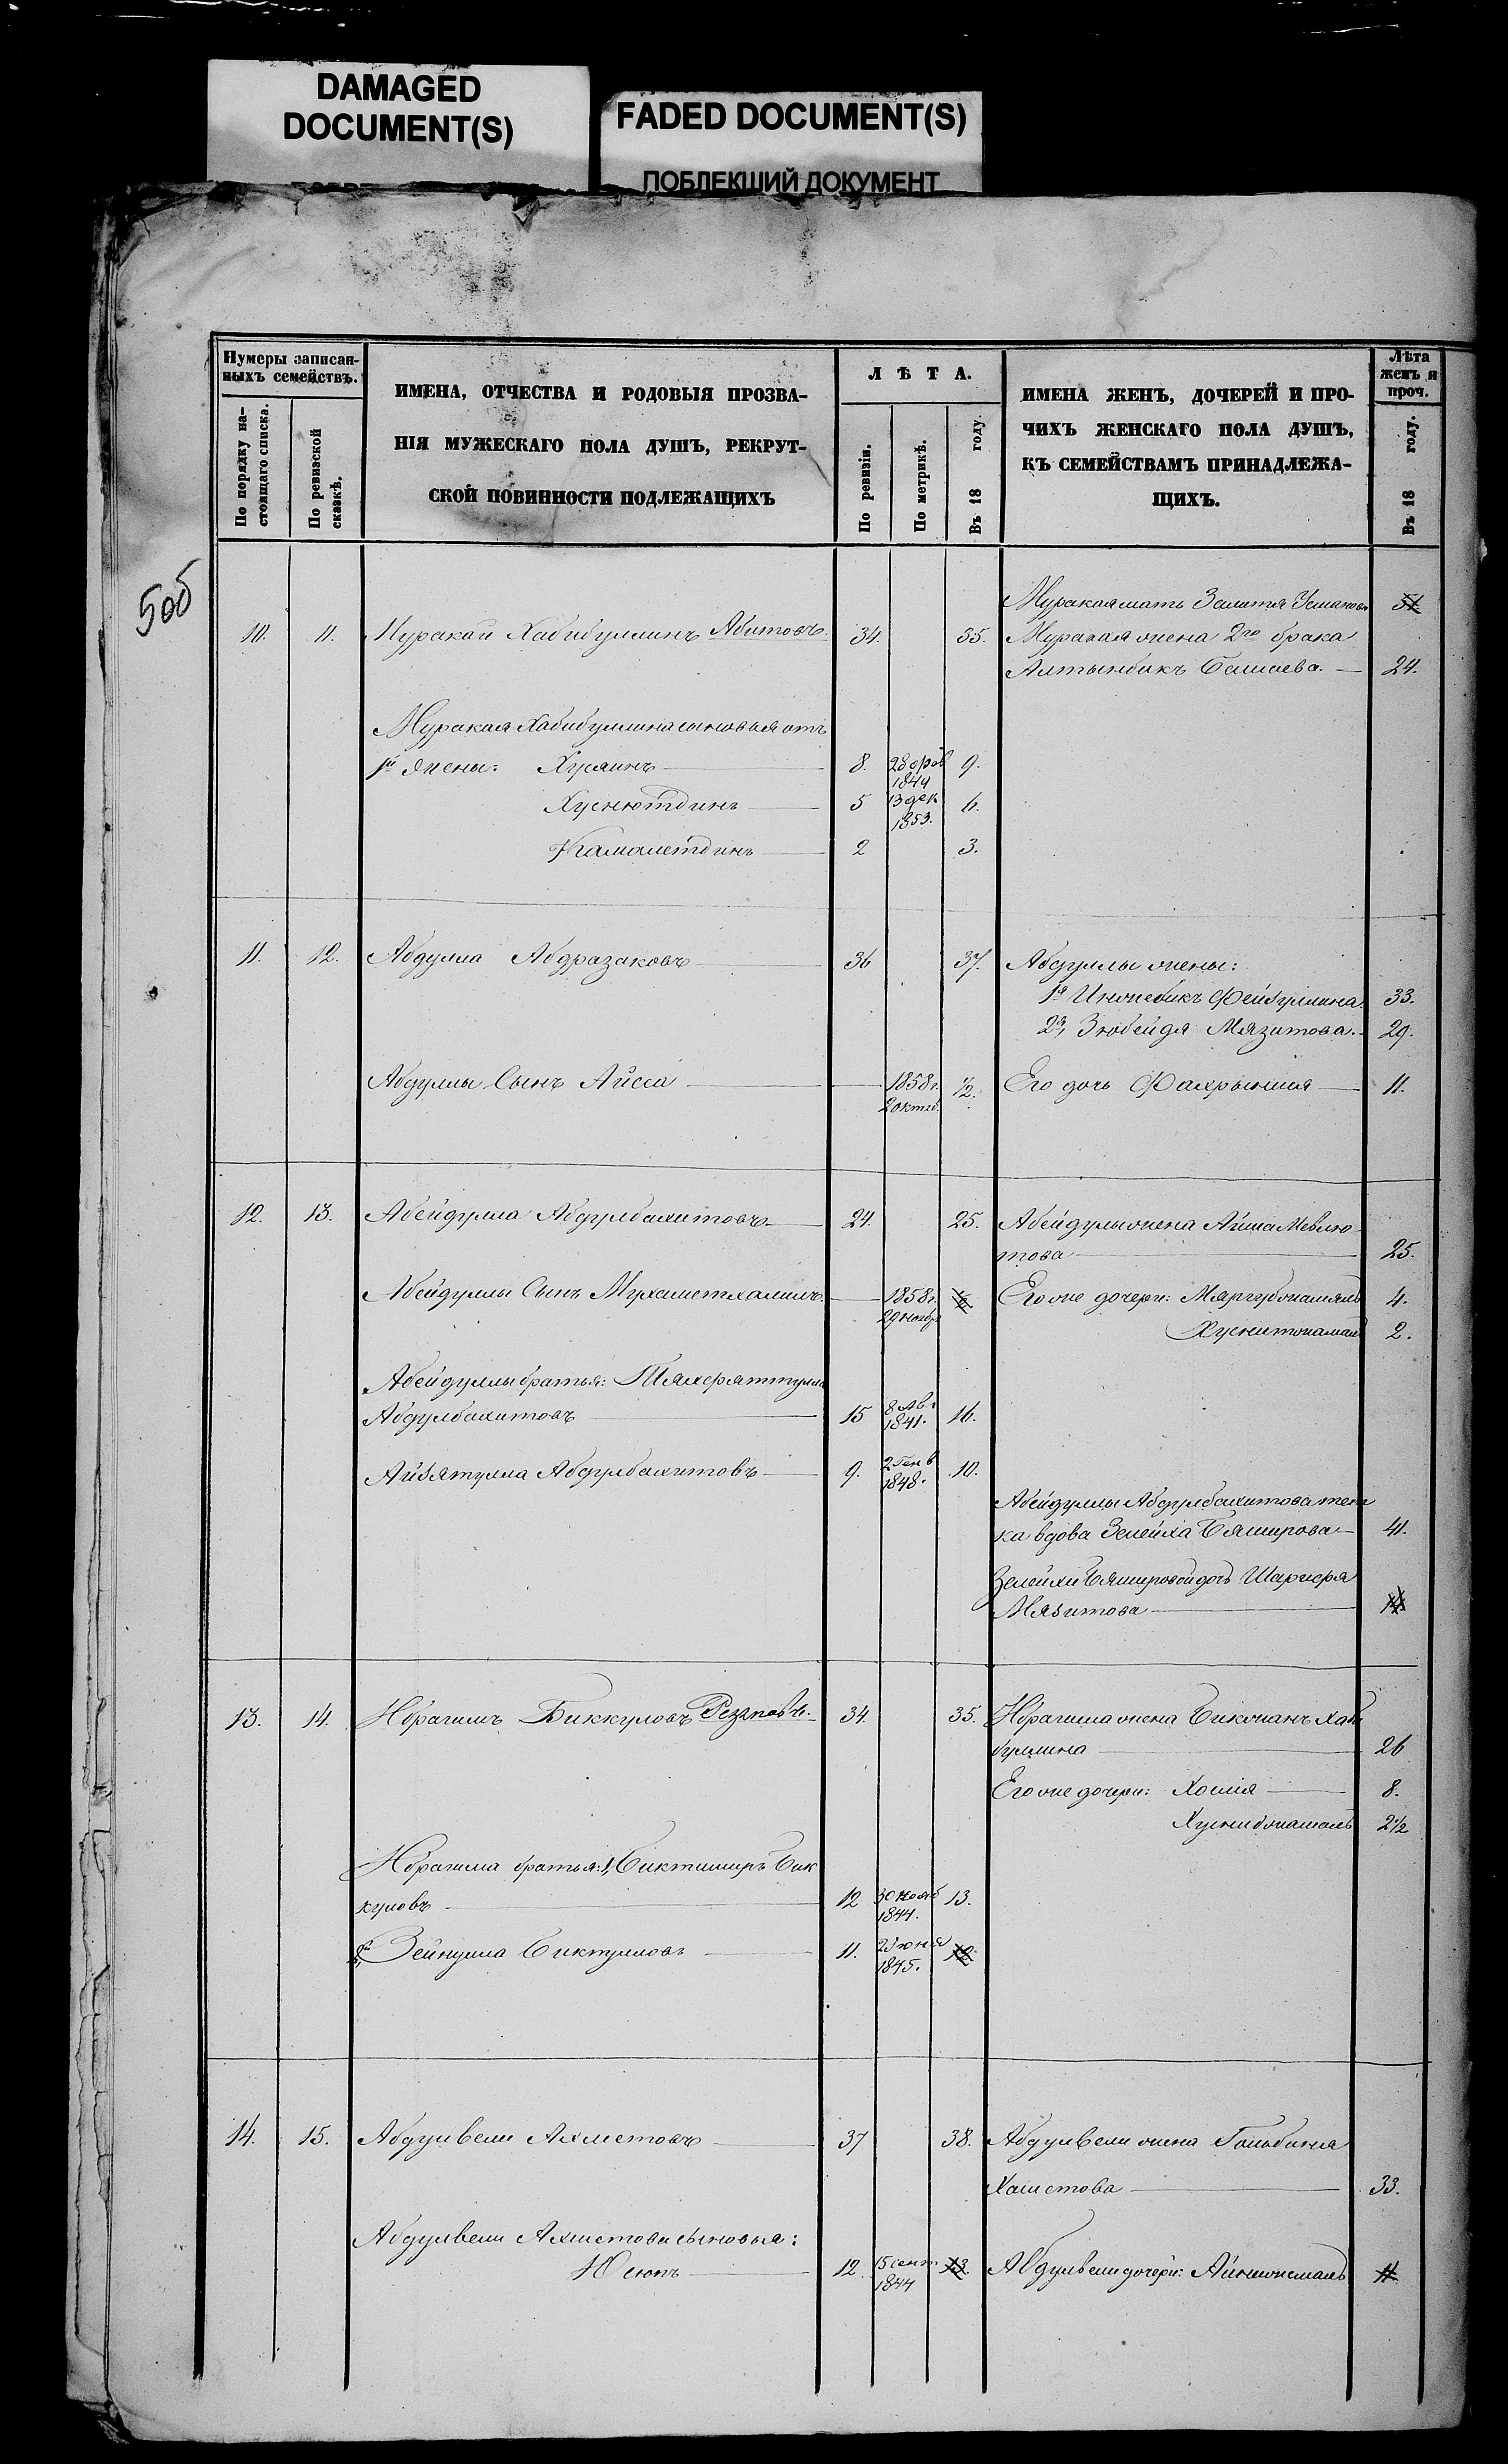 DAMAGED
DOCUMENT(S)
FADED DOCUMENT(S)
ПОБЛЕКШИЙ ДОКУМЕНТ
Нумеры записан-
ныхъ семействъ.
По порядку на-
стоящаго списка.
По ревизской
сказкѣ.
ИМЕНА, ОТЧЕСТВА И РОДОВЫЯ ПРОЗВА-
НІЯ МУЖЕСКАГО ПОЛА ДУШЪ, РЕКРУТ-
СКОЙ ПОВИННОСТИ ПОДЛЕЖАЩИХЪ
ЛѢТА.
По ревизіи.
По метрикѣ.
Въ 18 году.
ИМЕНА ЖЕНЪ, ДОЧЕРЕЙ И ПРО-
ЧИХЪ ЖЕНСКАГО ПОЛА ДУШЪ,
КЪ СЕМЕЙСТВАМЪ ПРИНАДЛЕЖА-
ЩИХЪ.
Лѣта
женъ и
проч.
Въ 18 году.
5об
Муракая мать
10. 11. Муракай Хабибуллинъ Абитовъ. 34. 35. Муракая жена 2го брака
Алтынбикъ Башаева. 24.
Муракая Хабибуллина сыновья отъ
1й жены: Хусаинъ 8. 28 фев 1849 9.
Хуснютдинъ 5 13 дек 1853. 6.
Камалетдинъ 2 3.
11. 12. Абдулла Абдразаковъ 36 37. Абдуллы жены:
1я Фейзуллина 33.
2я, Зюбейдя Мязитова. 29.
Абдуллы сынъ Айсса 1858 г. 2 октяб. 1/2. Его дочь 11.
12. 13. Абейдулла Абдулбакитовъ 24. 25. Абейдуллы жена Айша Мевлю-
това 25.
Абейдуллы сынъ Мухаметхалимъ. 1858 г. 29 ноябр Его же дочери: 4.
2.
Абейдуллы братья:
Абдулбакитовъ 15 8 Авг 1841. 16.
Абдулбакитовъ 9. 2 Генв 1848. 10.
Абейдуллы Абдулбакитова тет
ка вдова Зелейха Бяширова 41.
Зелейхи Бяшировой дочь
Мязитова
13. 14. Ибрагимъ Биккуловъ 34. 35. Ибрагима жена Бикжанъ Хаби
буллина 26
Его же дочери: 8.
2 1/2
Ибрагима братья: 1, Биктимиръ Бик
куловъ 12 30 нояб 1844. 13.
2й Зейнулла 11. 23 июня 1845.
14. 15. Абдулвели Ахметовъ 37 38. Абдулвели жена
Хаметова 33.
Абдулвели Ахметова сыновья:
Юсюпъ 12. 15 сент. 1844 13. Абдулвели дочери: 11